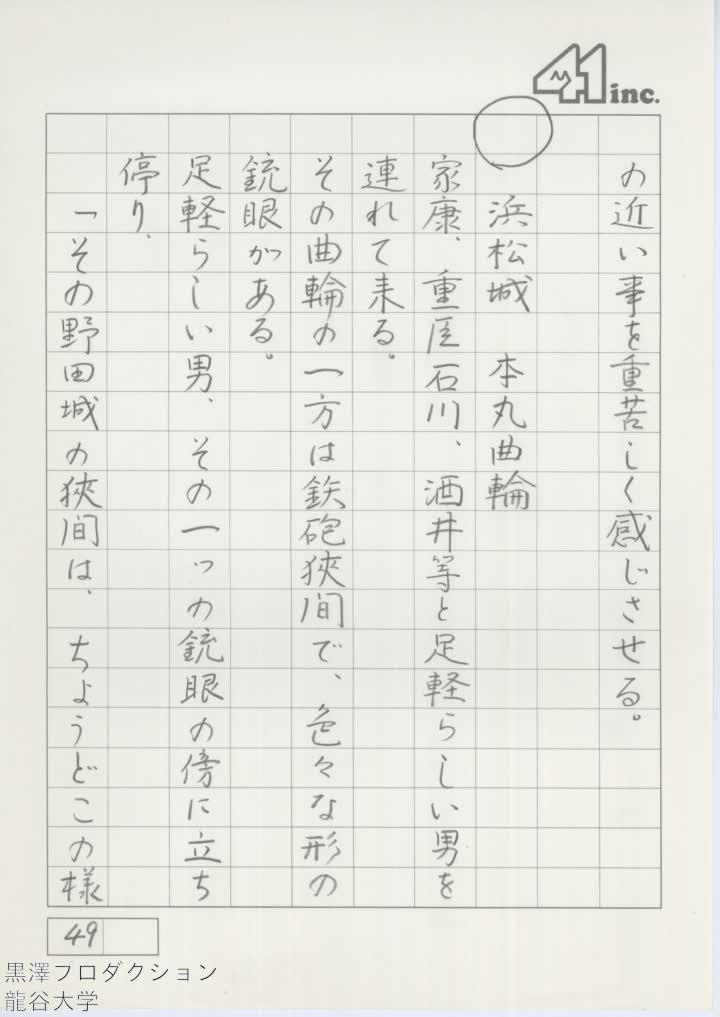 41 inc.
の近い事を重苦しく感じさせる。
○浜松城　本丸曲輪
家康、重臣石川、酒井等と足軽らしい男を
連れて来る。
その曲輪の一方は鉄砲狭間で、色々な形の
銃眼がある。
足軽らしい男、その一つの銃眼の傍に立ち
停り、
「その野田城の狭間は、ちょうどこの様
49
黒澤プロダクション
龍谷大学